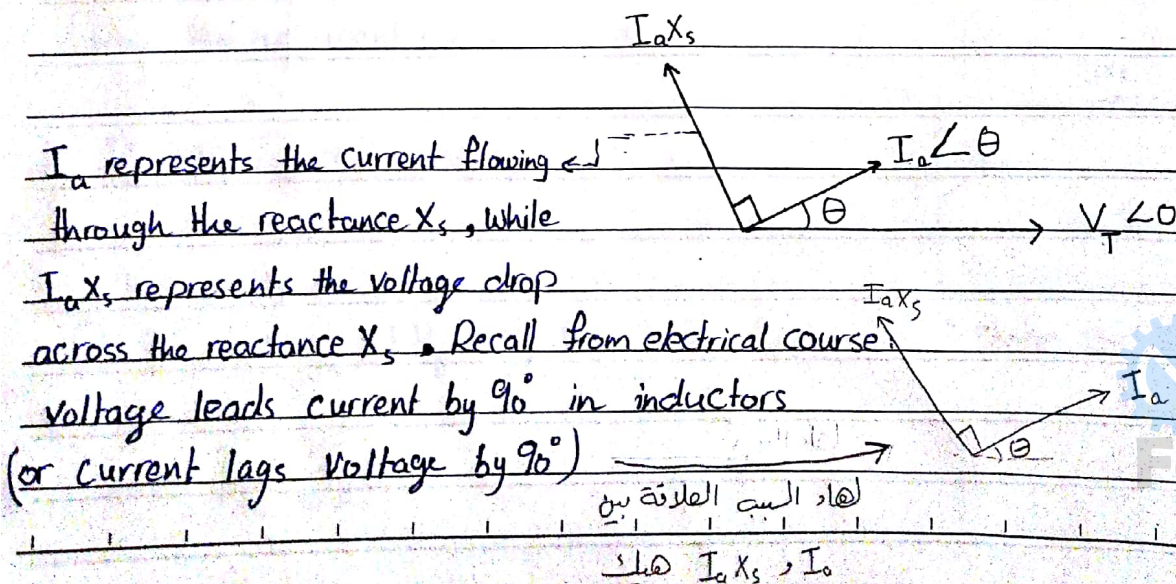 IₐXₛ
Iₐ represents the current flowing
Iₐ∠θ
through the reactance Xₛ, while
θ
V_T∠0
IₐXₛ represents the voltage drop
IₐXₛ
across the reactance Xₛ. Recall from electrical course:
voltage leads current by 90° in inductors
Iₐ
θ
(or current lags voltage by 90°)
لهاد السبب العلاقة بين
Iₐ و IₐXₛ هيك